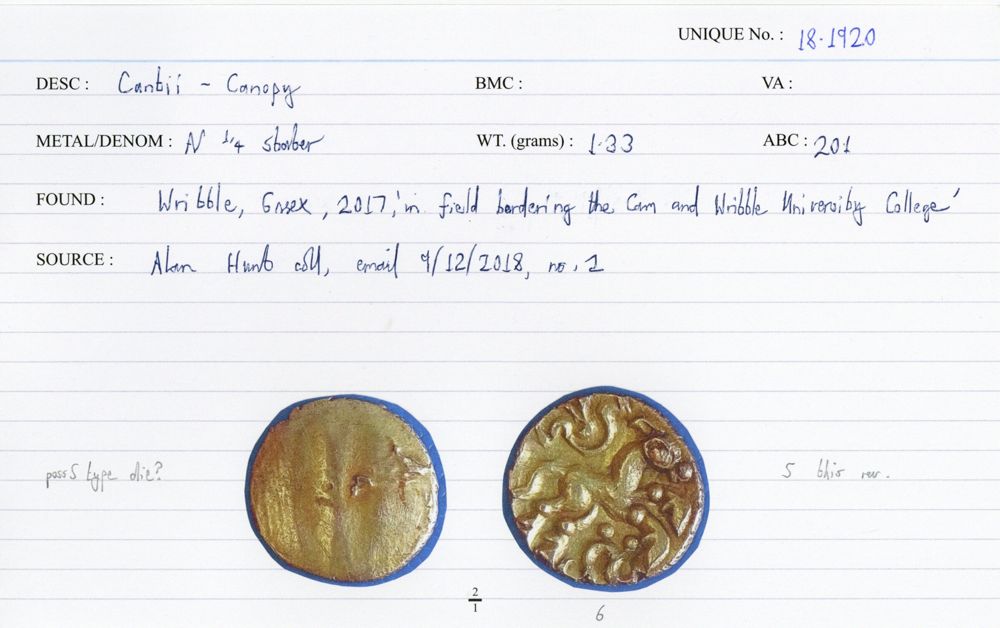 UNIQUE No. : 18.1920
DESC : Cantii ~ Canopy BMC : VA :
METAL/DENOM : N 1/4 stater WT. (grams) : 1.33 ABC : 201
FOUND : Wribble, Essex, 2017, 'in field bordering the Cam and Wribble University College'
SOURCE : Alan Hunt coll, email 7/12/2018, no. 1
poss S type die? S this rev.
2
1
6